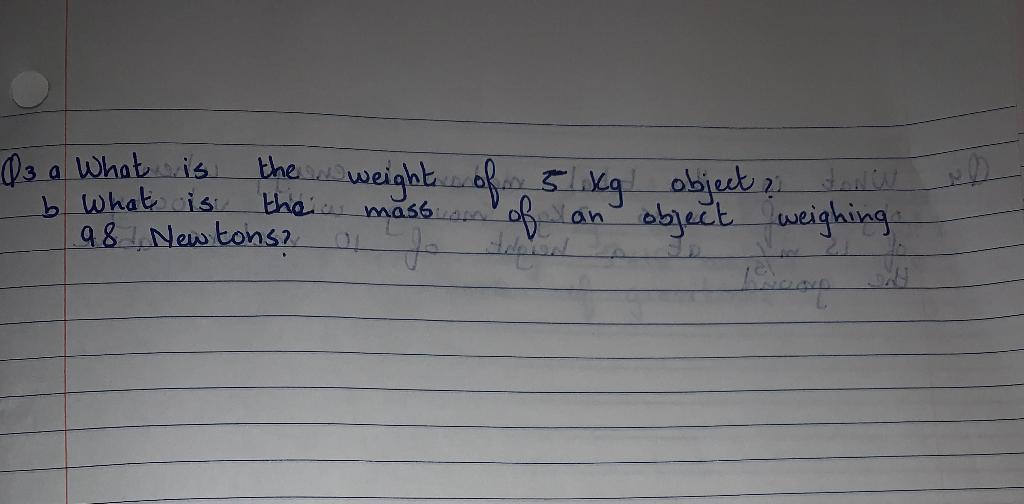 Q3 a What is the weight of 5 kg object?
b What is the mass of an object weighing
98 Newtons?